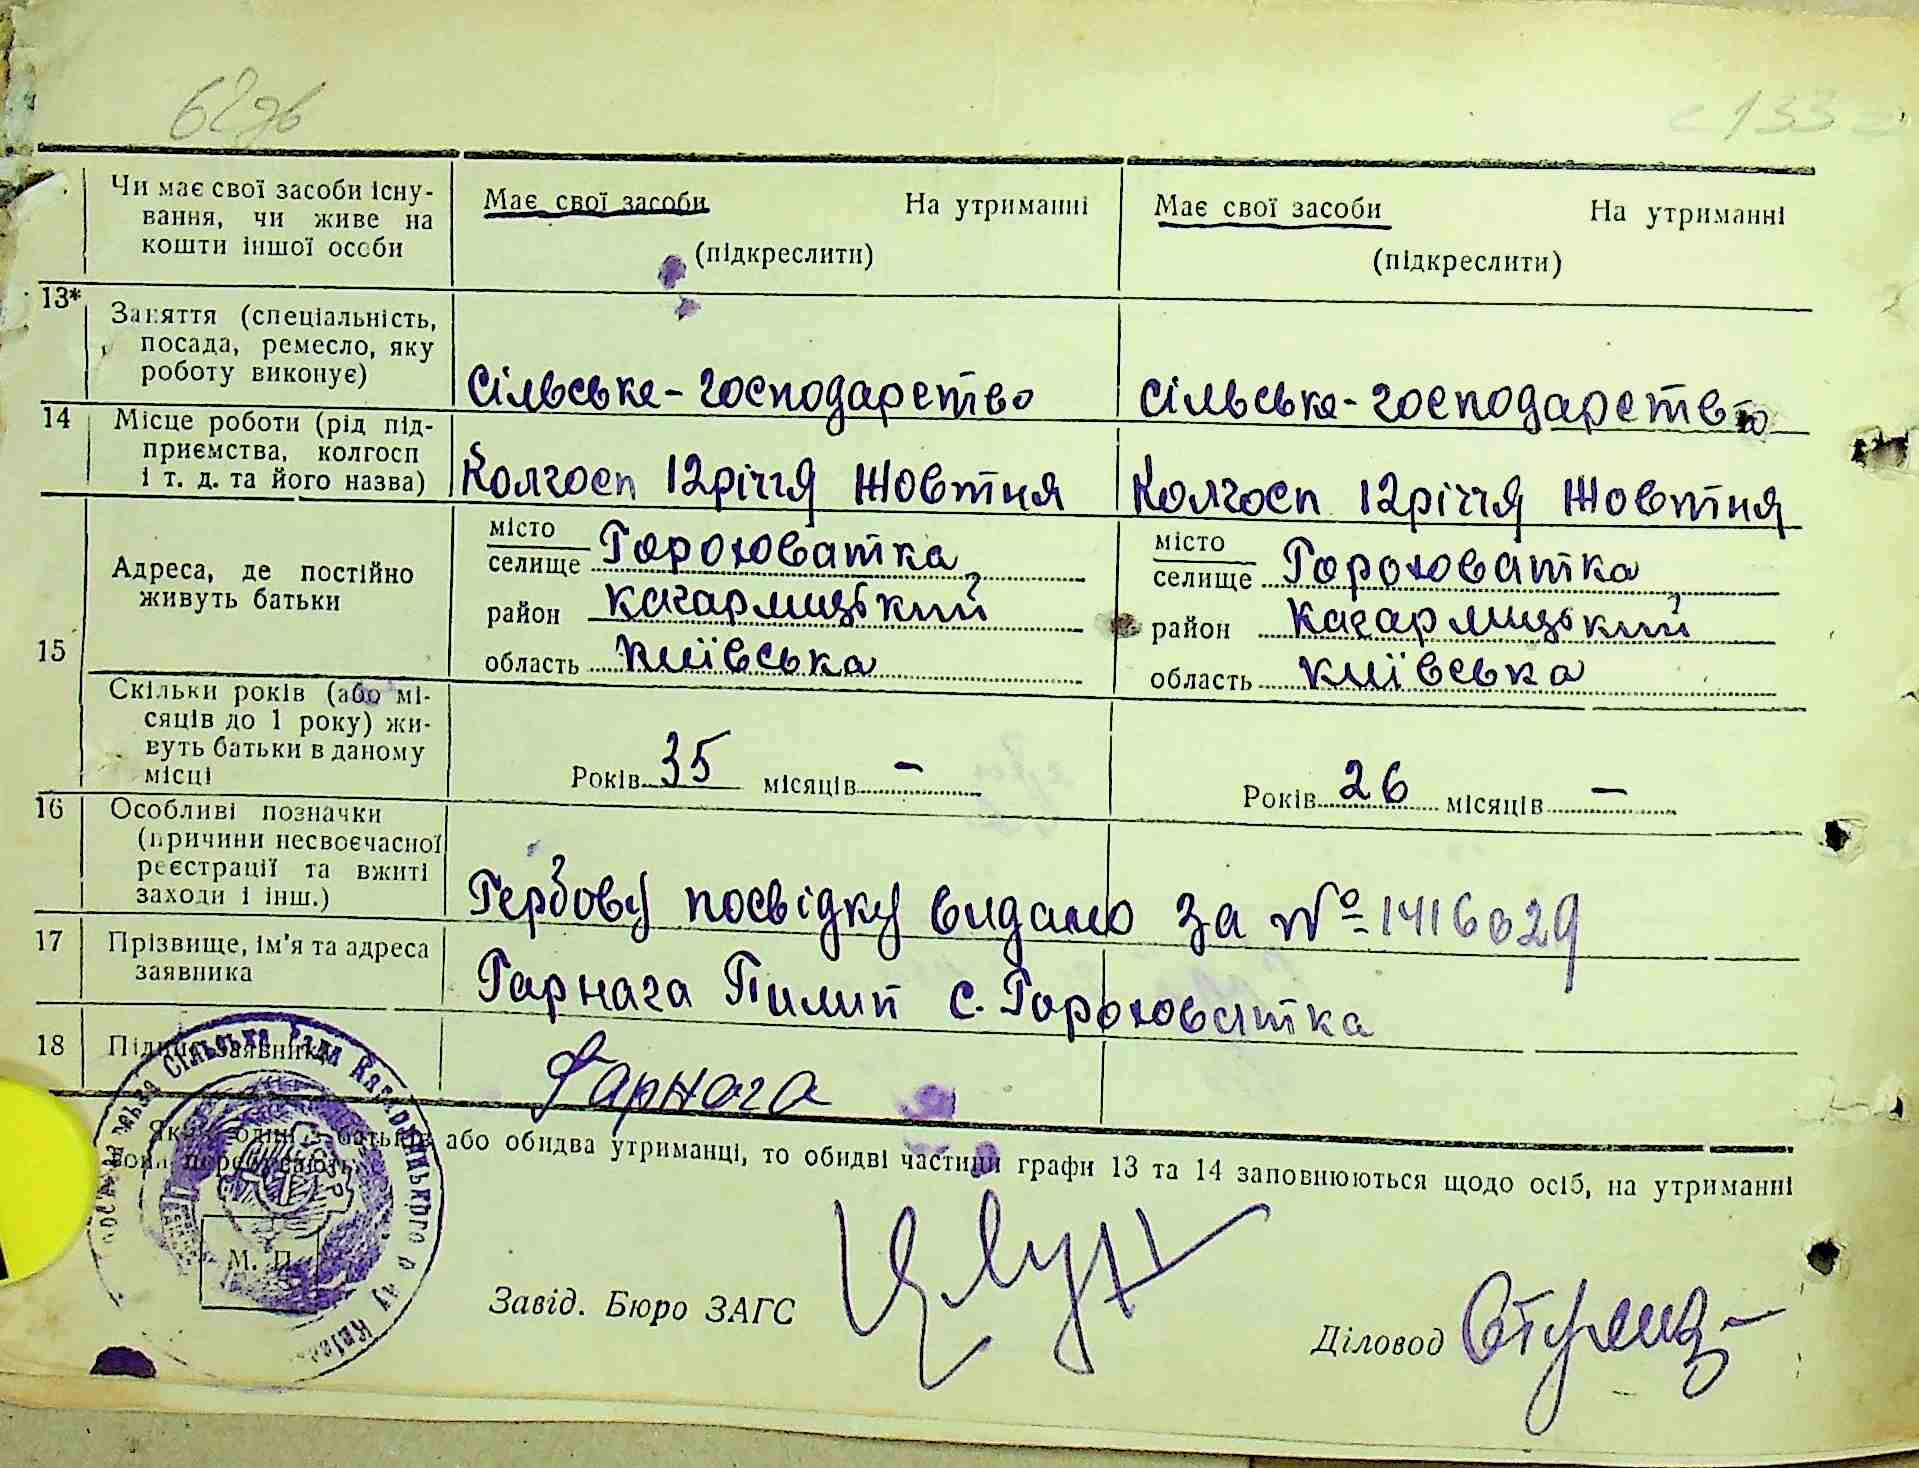 62зв
133
Чи має свої засоби існу-
вання, чи живе на
кошти іншої особи
Має свої засоби На утриманні
(підкреслити)
Має свої засоби На утриманні
(підкреслити)
13*
Заняття (спеціальність,
посада, ремесло, яку
роботу виконує)
Сільське-господарство
Сільське-господарство
14
Місце роботи (рід під-
приємства, колгосп
і т. д. та його назва)
Колгосп 12річчя Жовтня
Колгосп 12річчя Жовтня
15
Адреса, де постійно
живуть батьки
місто
селище Гороховатка
район Кагарлицький
область Київська
місто
селище Гороховатка
район Кагарлицький
область Київська
Скільки років (або мі-
сяців до 1 року) жи-
вуть батьки в даному
місці
Років 35 місяців –
Років 26 місяців –
16
Особливі позначки
(причини несвоєчасної
реєстрації та вжиті
заходи і інш.)
Гербову посвідку видано за № 1416029
17
Прізвище, ім'я та адреса
заявника
Гарнага Пилип с. Гороховатка
18
Підпис заявника
Гарнага
Якщо один з батьків або обидва утриманці, то обидві частини графи 13 та 14 заповнюються щодо осіб, на утриманні
вони перебувають.
Сільська Рада
М. П.
Завід. Бюро ЗАГС
Діловод